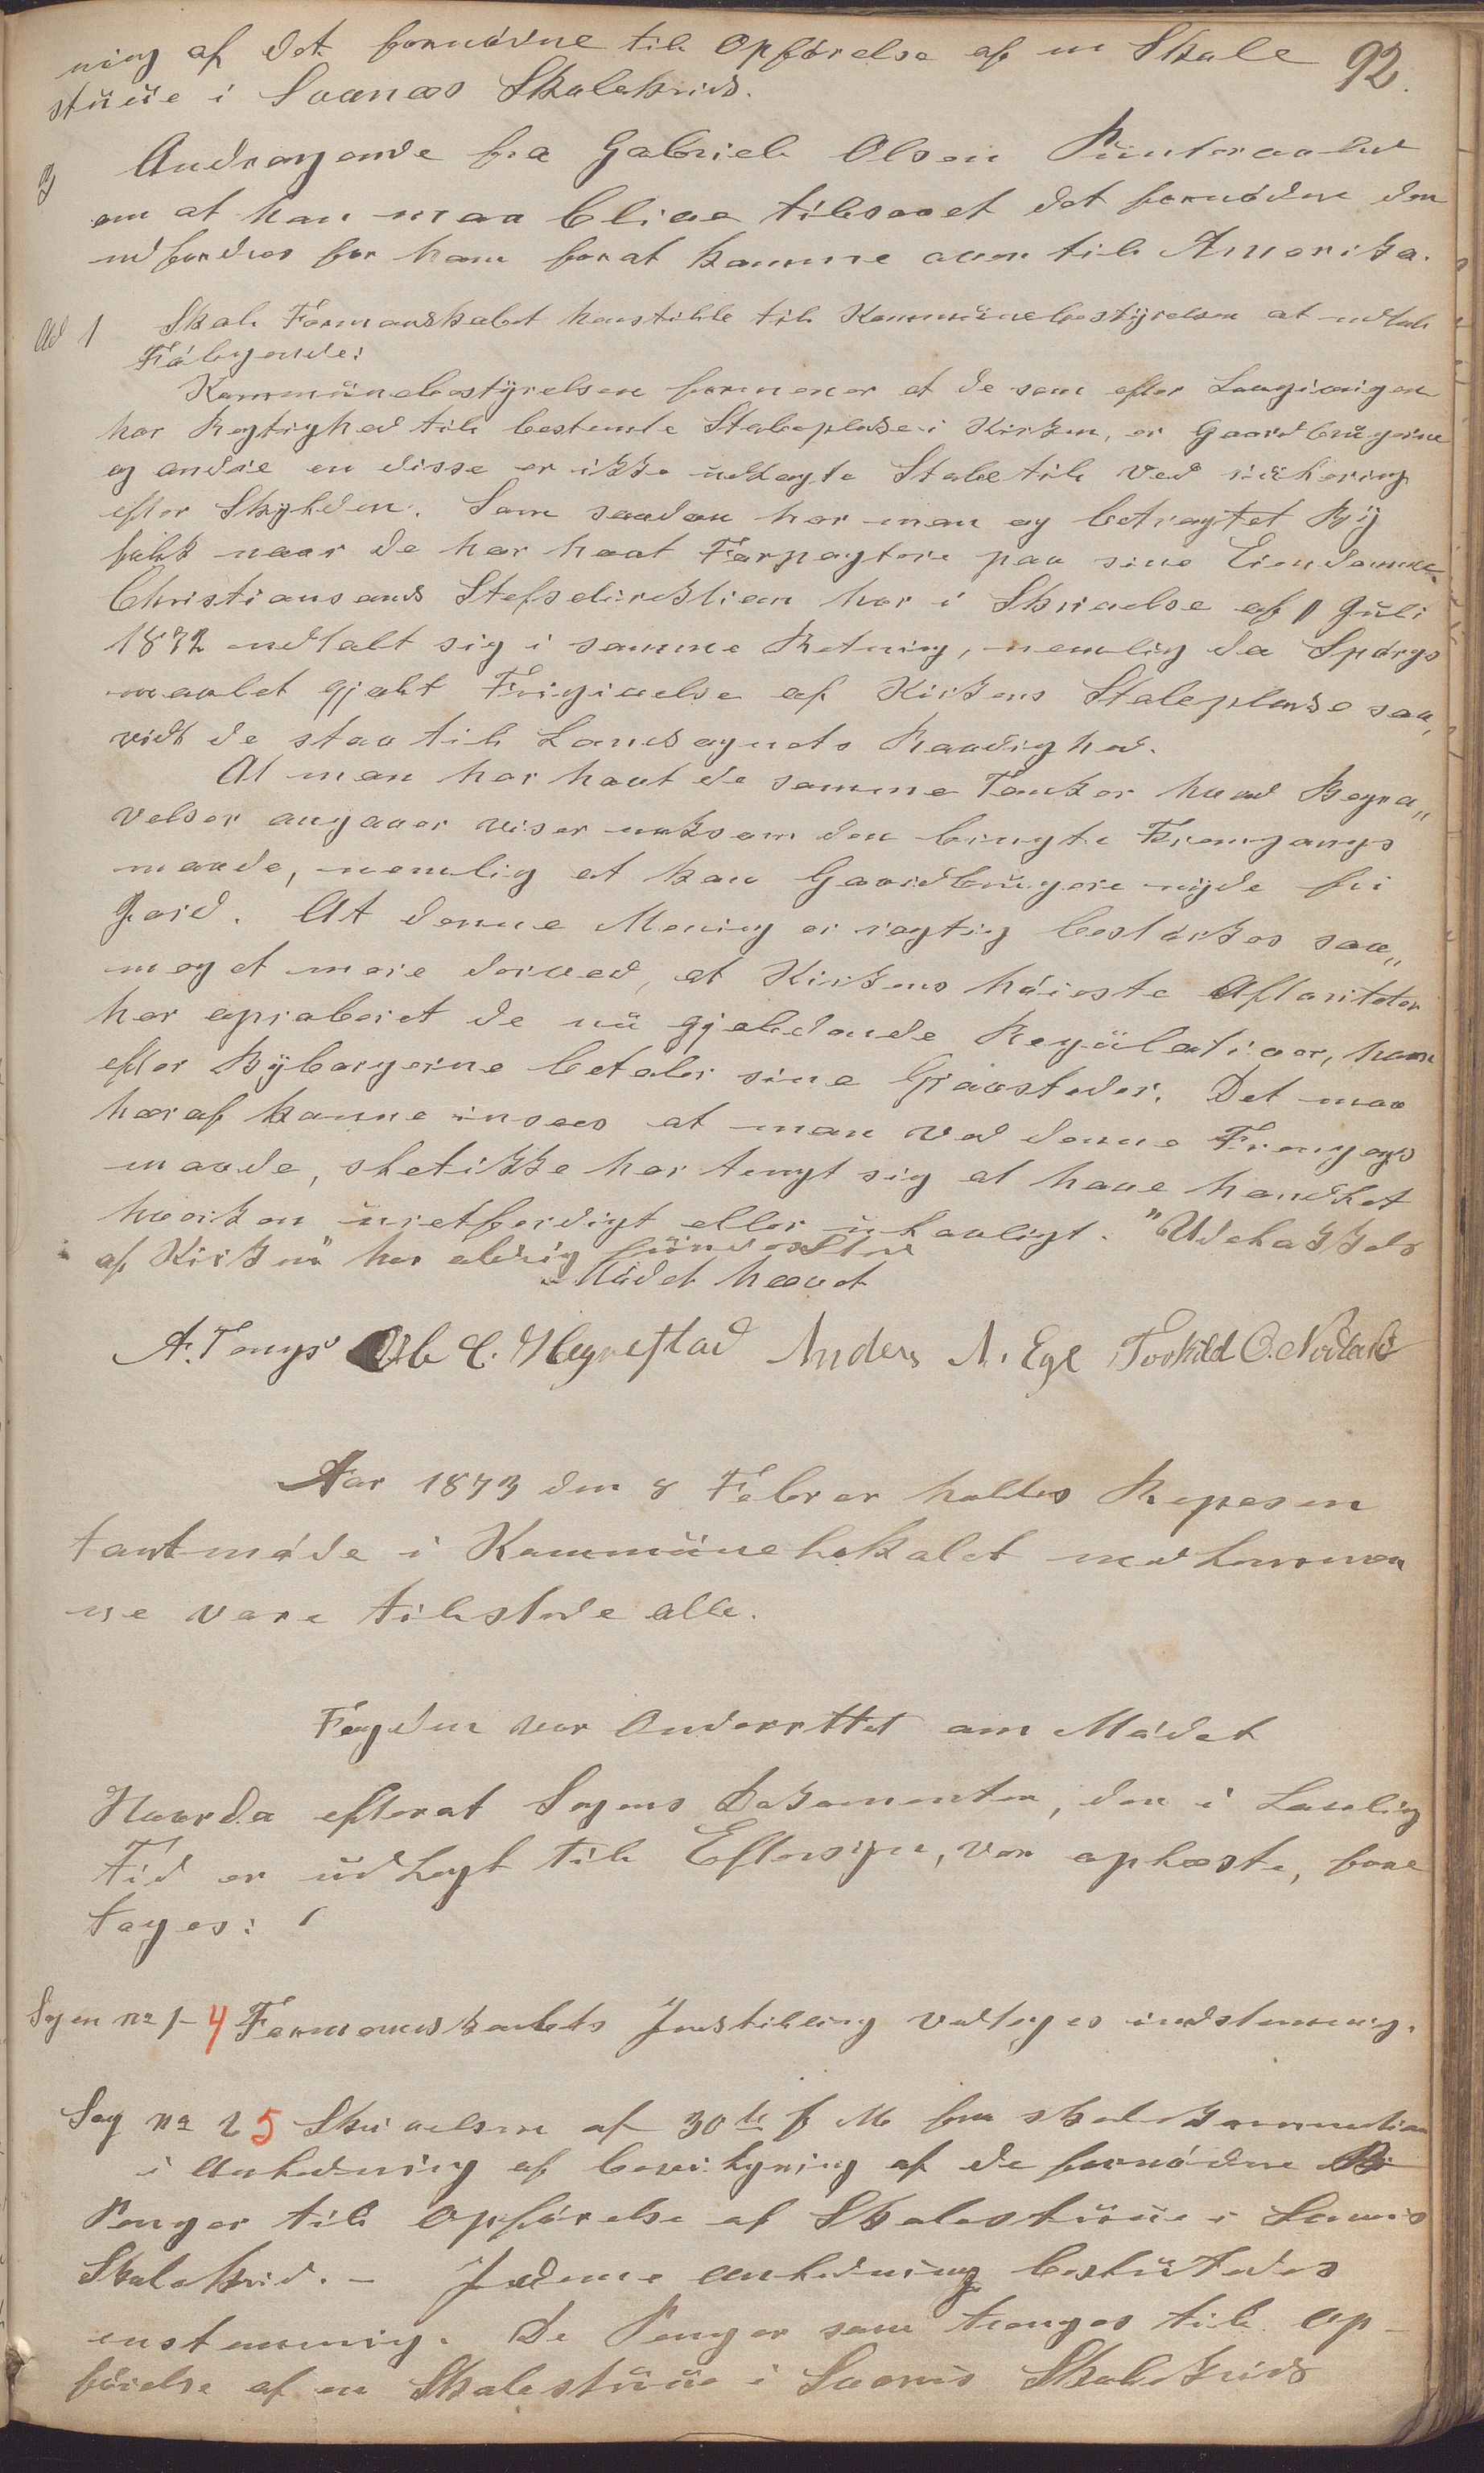 92.
ning af det fornödne til Opförelse af en Skole
stüüe i Svanæs Skolekrids.
3 Andragende fra Gabriel Olsen Püntervold
om at han maa blive tilstaaet det fornödne der
udfordres for ham forat komme over til Amerika.
Ad 1 Skal Formanskabet henstille til Kommünebestÿrelsen at udtale
Fölgende:
Kommünebestÿrelsen formener at de som efter Lovgivnigen
har Regtighed til bestemte Stoleplase i Kirken, er Gaardbrügerne
og andre en disse er ikke udlagte Stole til ved
efter Skylden. Som saadan har man og betragtet Bÿ
folk naar de har havt Forpagtere paa sine Eiendomme.
Christiansands Stefsdirektion har i Skrivelse af 11 Jüli
1872 udtalt sig i samme Retning, nemlig da Spörgs
maalet gjalt Frigivelse af Kirkens Stoleplase saa„
vidt de staa til Landsognets Raadighed.
At man har havt de samme Tanker hvad Begra„
velser angaaer viser noksom den brugte Fremgangs
maade, nemlig at kun Gaardbrügere nÿde fri
Jord. At denne Mening er rogtig bestörkes saa„
meget mere derved, at Kirkens höieste Aftoriteter
har aproberet de nü gjeldende Regülativer, hvor
efter Bÿborgerne betaler sine Gravsteder. Det maa
heraf kunne inses at man ved denne Fremgangs
maade, sletikke har tengt sig at have handlet
hverken üretferdigt eller ülovligt. "Udelükkels
af Kirken" har aldrig fünded Sted
Mödet hævet
A. Tongs Ole C. Hegrestad Anders A. Ege Torkild O. Nodland
Aar 1873 den 8 Februar holdtes Repesen
tantmöde i Kommünelokalet medlemmer
ne vare tilstede alle.
Fogden var Underrettet om Mödet
Hvorda efterat Sagens Dokomenter, der i Lovlig
Tid er üdlagt til Eftersÿn, var oplæste, fore
toges:
Sagen no 1-4 Formandskabets Instilling vedtoges indstemmig.
Sag no 2 5 Skrivelsen af 30te f M fra skolekommision
i Anledning af bevilgning af de fornödne
Penger til Opförelse af Skolestüüe i Svanæs
Skolekrid. - I denne anledning beslüttedes
enstemmig. De Penger som trenges til Op-
förelse af en Skolestüüe i Svanæs Skolekrids